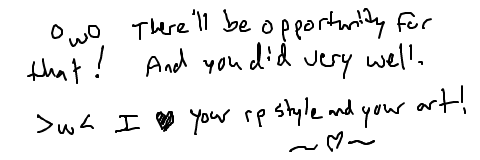 OwO There'll be opportunity for
that! And you did very well.
>w< I ♥ your rp style and your art!
~♡~